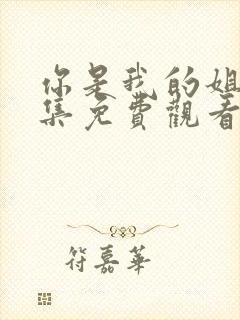 你是我的姐
集免費觀看
符嘉華